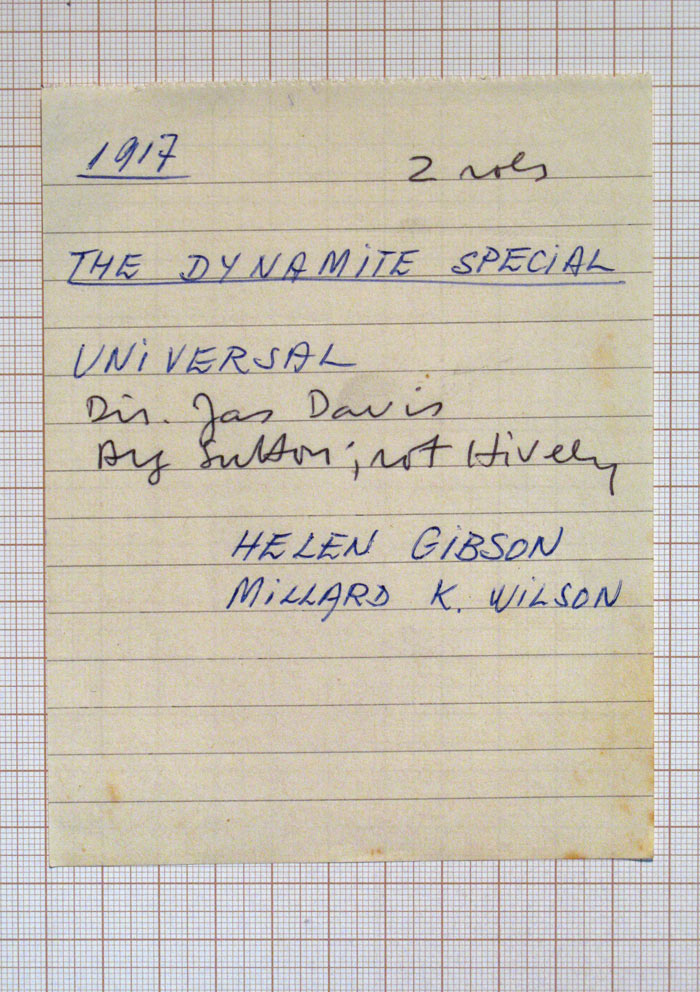 1917 2 rols
THE DYNAMITE SPECIAL
UNIVERSAL
Dir. Jas Davis
Arg Sutton; not Hively
HELEN GIBSON
MILLARD K. WILSON